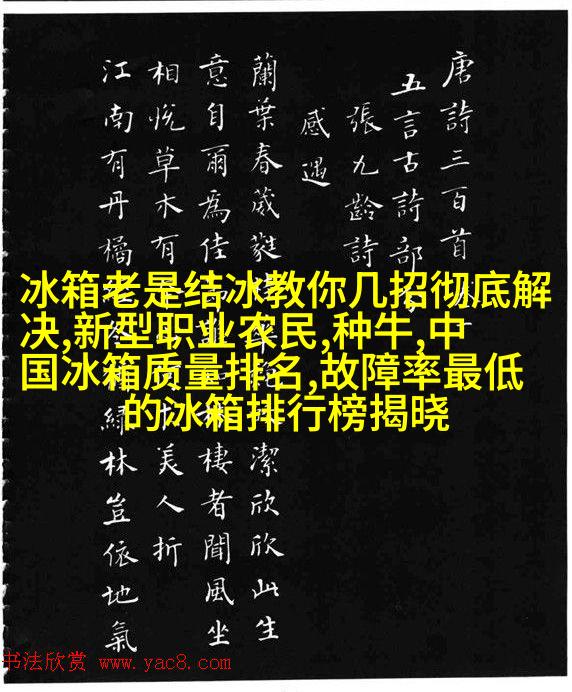 唐詩三百首
五言古詩部
張九齡詩
感遇
蘭葉春葳蕤潔欣欣此生
意自爾爲佳棲者聞風坐
相悅草木有美人折
江南有丹橘綠林豈依地氣
冰箱老是结冰教你几招彻底解
决,新型职业农民,种牛,中
国冰箱质量排名,故障率最低
的冰箱排行榜揭晓
书法欣赏 www.yac8.com